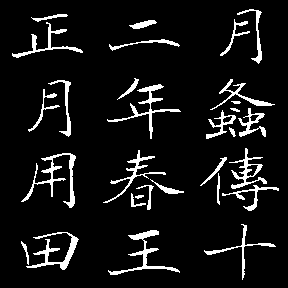 月螽傳十
二年春王
正月用田